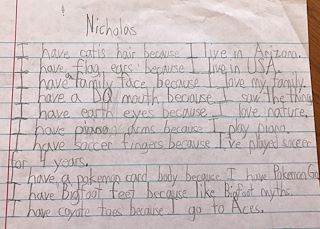 Nicholas
I have catis hair because I live in Arizona.
I have flag ears because I live in USA.
I have a family face because I love my family.
I have a mouth because I saw the thing
I have earth eyes because I love nature.
I have piano arms because I play piano.
I have soccer fingers because I've played soccer
for 4 years.
I have a pokemon card body because I have Pokemon Go
I have Bigfoot feet because I like Bigfoot myths.
I have coyote toes because I go to Aces.